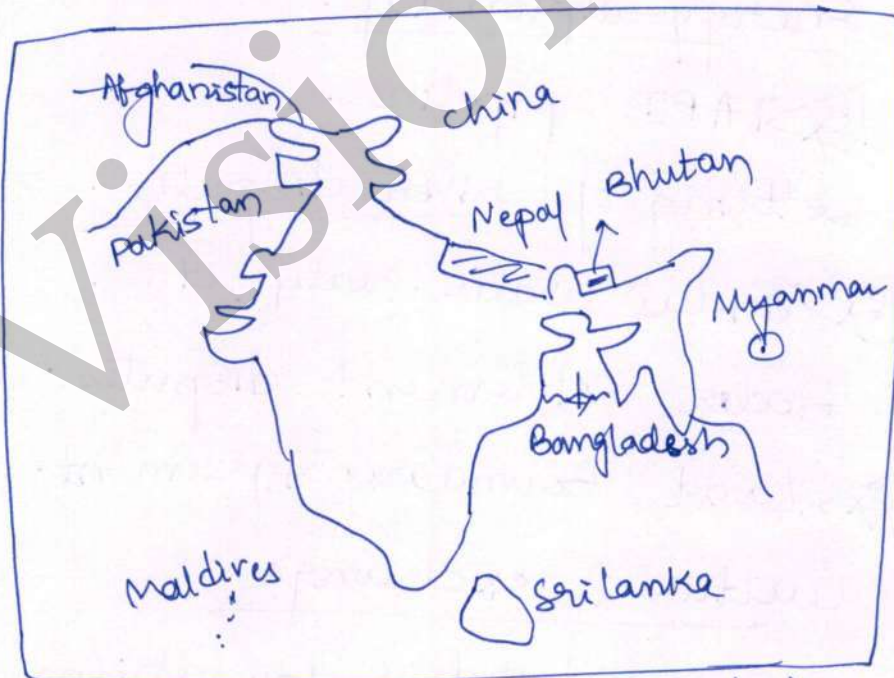 Afghanistan
china
Pakistan
Nepal
Bhutan
Myanmar
Bangladesh
Maldives
Sri lanka
Vision